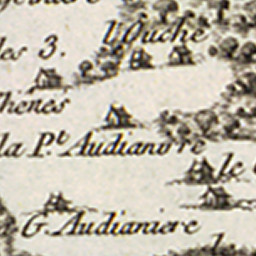 l'Ouche
les 3.
Chenes
la P.te Audianiere
le
G. Audianiere